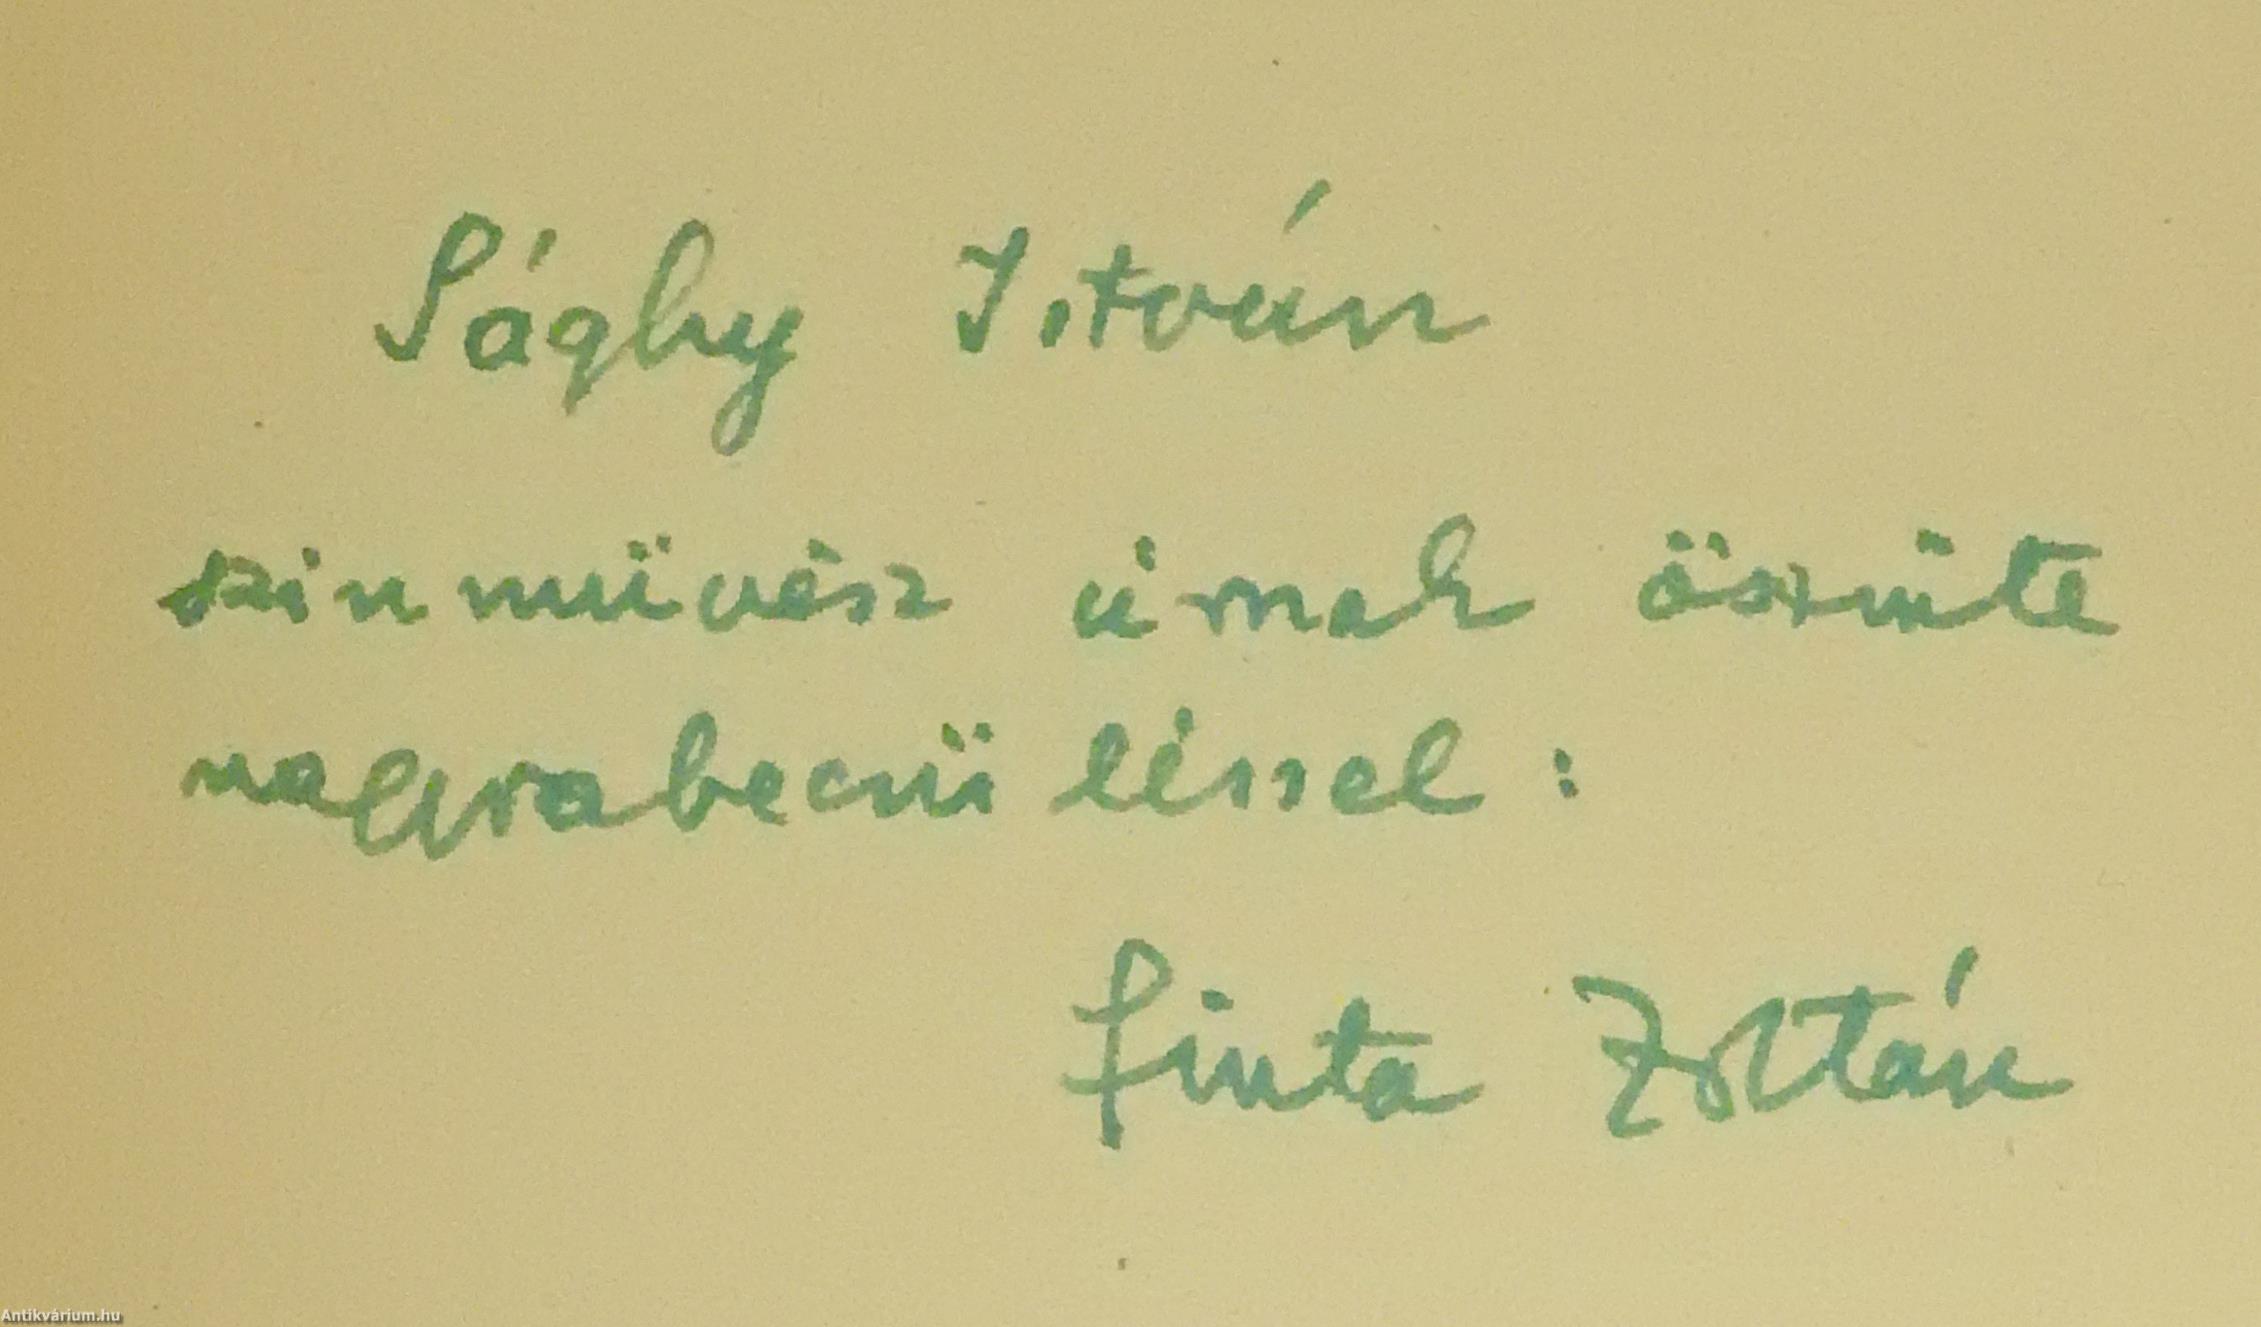 Sághy István
szinmüvész úrnak öszinte
nagyrabecsüléssel:
Finta Zoltán
Antikvárium.hu